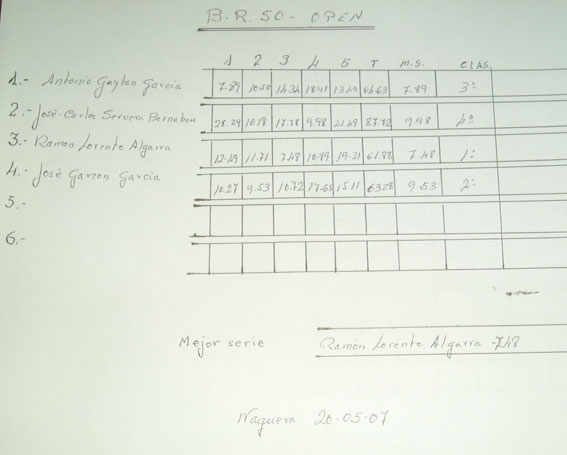 B.R. 50 - OPEN
1 2 3 4 5 T M.S. CLAS.
1.- Antonio Gaytan Garcia 7.89 10.50 14.34 18.41 64.63 7.89 3º
2.- José-Carlos Servera Bernabeu 28.29 10.18 17.78 9.98 21.49 87.72 9.98 4º
3.- Ramon Lorente Algarra 12.49 11.71 7.48 10.89 19.31 61.88 7.48 1º
4.- José Garzon Garcia 10.27 9.53 10.72 17.65 15.11 63.28 9.53 2º
5.-
6.-
Mejor serie Ramón Lorente Algarra - 7.48
Naquera 20-05-07